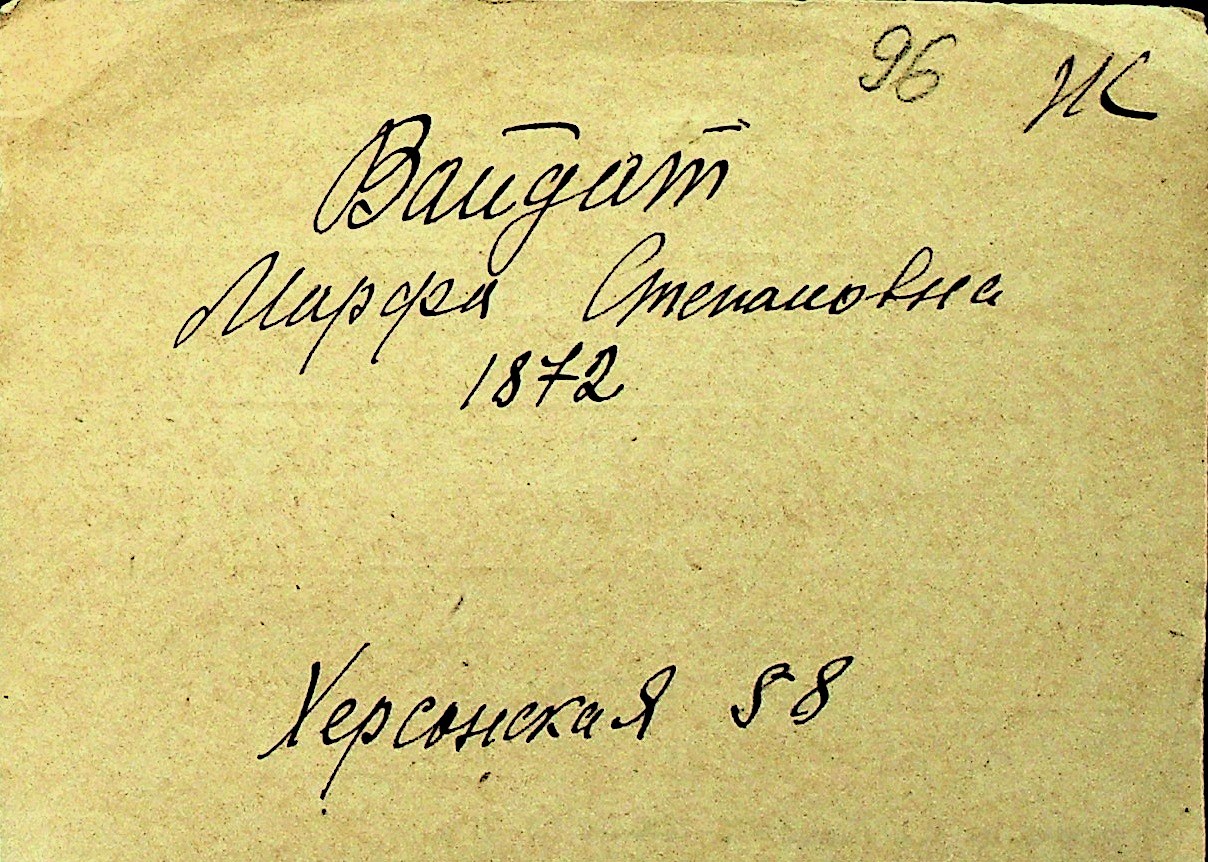 96 Ж
Вайдат
Марфа Степановна
1872
Херсонская 58